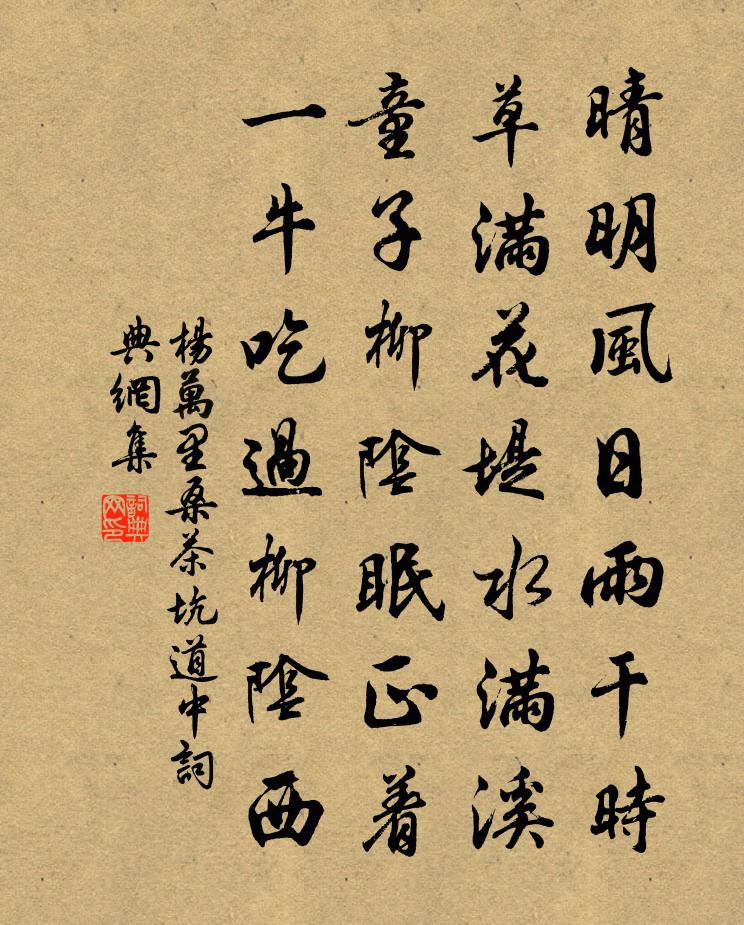 晴明風日雨干時
草滿花堤水滿溪
童子柳陰眠正着
一牛吃過柳陰西
楊萬里桑茶坑道中詞
典網集
詞典網印